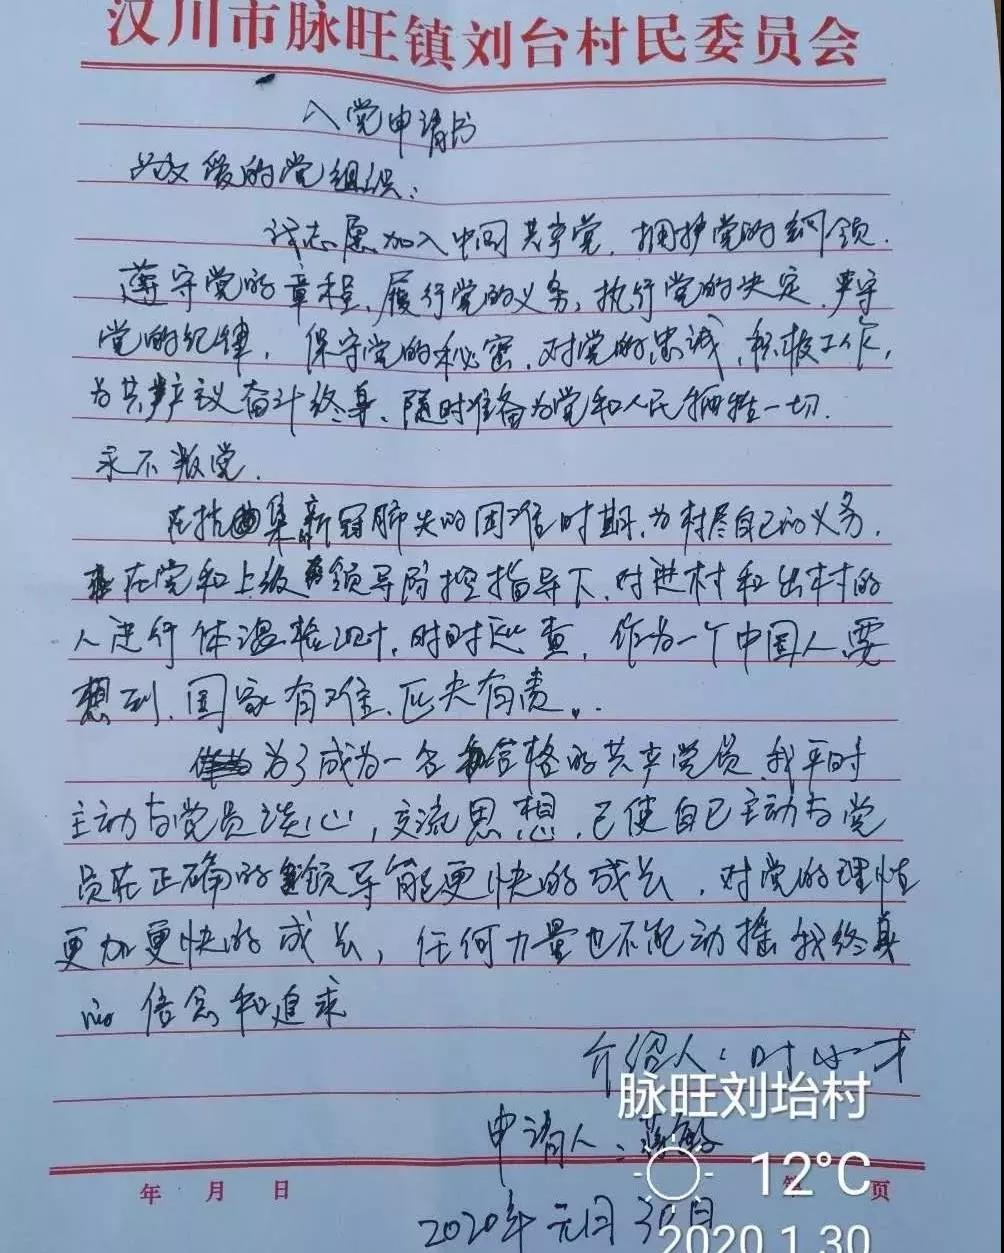 汉川市脉旺镇刘台村民委员会
入党申请书
敬爱的党组织：
我志愿加入中国共产党，拥护党的纲领，
遵守党的章程、履行党的义务，执行党的决定，严守
党的纪律，保守党的秘密，对党的忠诚，积极工作，
为共产主议奋斗终身、随时准备为党和人民牺牲一切．
永不叛党．
在抗集新冠肺炎的困难时期，为村尽自己的义务，
在党和上级领导防控指导下，对进村和出村的
人进行体温检测，时时巡查，作为一个中国人要
想到、国家有难、匹夫有责。
为了成为一名合格的共产党员，我平时
主动与党员谈心，交流思想，已使自己主动与党
员在正确的领导能更快的成长，对党的理性
更加更快的成长，任何力量也不能动摇我终身
的信念和追求
介绍人：
脉旺刘坮村
申请人：
12°C
年 月 日
页
2020年元月30日
2020.1.30